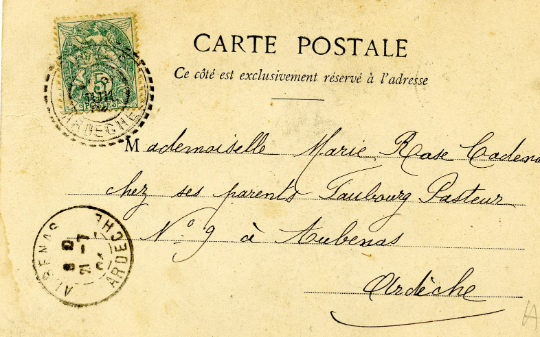 CARTE POSTALE
Ce côté est exclusivement réservé à l'adresse
5
ARDECHE
Mademoiselle Marie Rose Cadena
chez ses parents Faubourg Pasteur
N° 9 à Aubenas
Ardèche
AUBENAS
ARDECHE